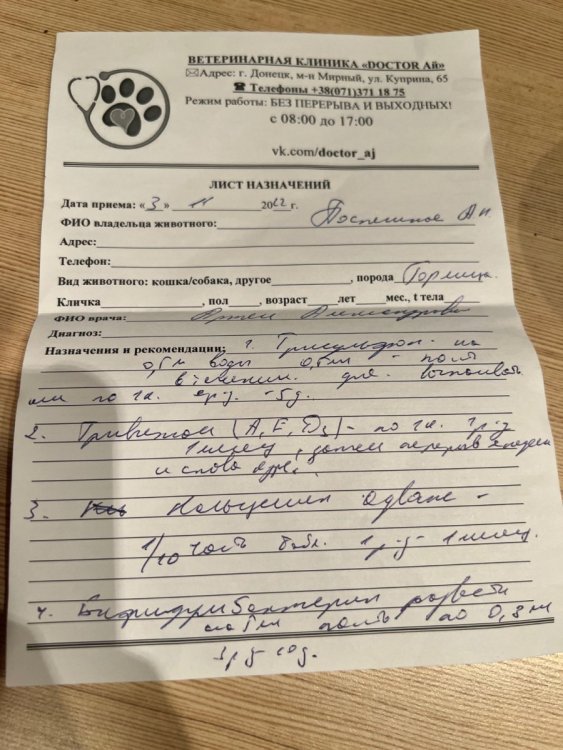 ВЕТЕРИНАРНАЯ КЛИНИКА «DOCTOR Ай»
Адрес: г. Донецк, м-н Мирный, ул. Куприна, 65
Телефоны +38(071)371 18 75
Режим работы: БЕЗ ПЕРЕРЫВА И ВЫХОДНЫХ!
с 08:00 до 17:00
vk.com/doctor_aj
ЛИСТ НАЗНАЧЕНИЙ
Дата приема: «3» 11 2022 г.
ФИО владельца животного:
Адрес:
Телефон:
Вид животного: кошка/собака, другое , порода Горлица
Кличка , пол , возраст лет мес., t тела
ФИО врача: Александрович
Диагноз:
Назначения и рекомендации: 1. Трисульфон - на
воды 0,5мл - поить
в течении дня
или по 1к. 1р-д - 5д.
2. Тривитам (A, E, D3) - по 1к. 1р-д
1 месяц, затем перерыв
и снова курс.
3. Кальцемин адванс -
1/10 часть табл. 1р-д - 1 месяц.
4. Бифидумбактерин развести
на 5мл поить по 0,3 мл